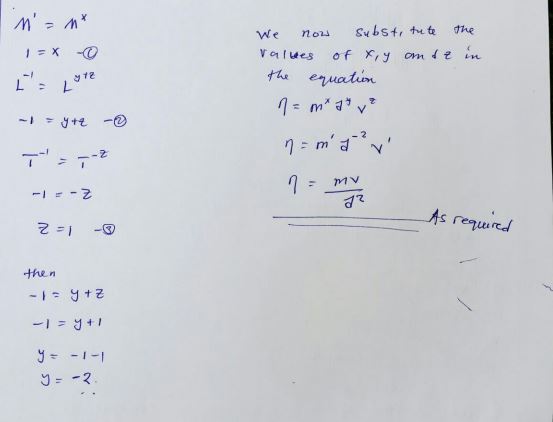 M' = M^x
1 = x -①
L^-1 = L^y+z
-1 = y+z -②
T^-1 = T^-z
-1 = -z
z = 1 -③
then
-1 = y+z
-1 = y+1
y = -1-1
y = -2.
We now substitute the
values of x, y and z in
the equation
η = m^x d^y v^z
η = m' d^-2 v'
η = mv/d²
As required